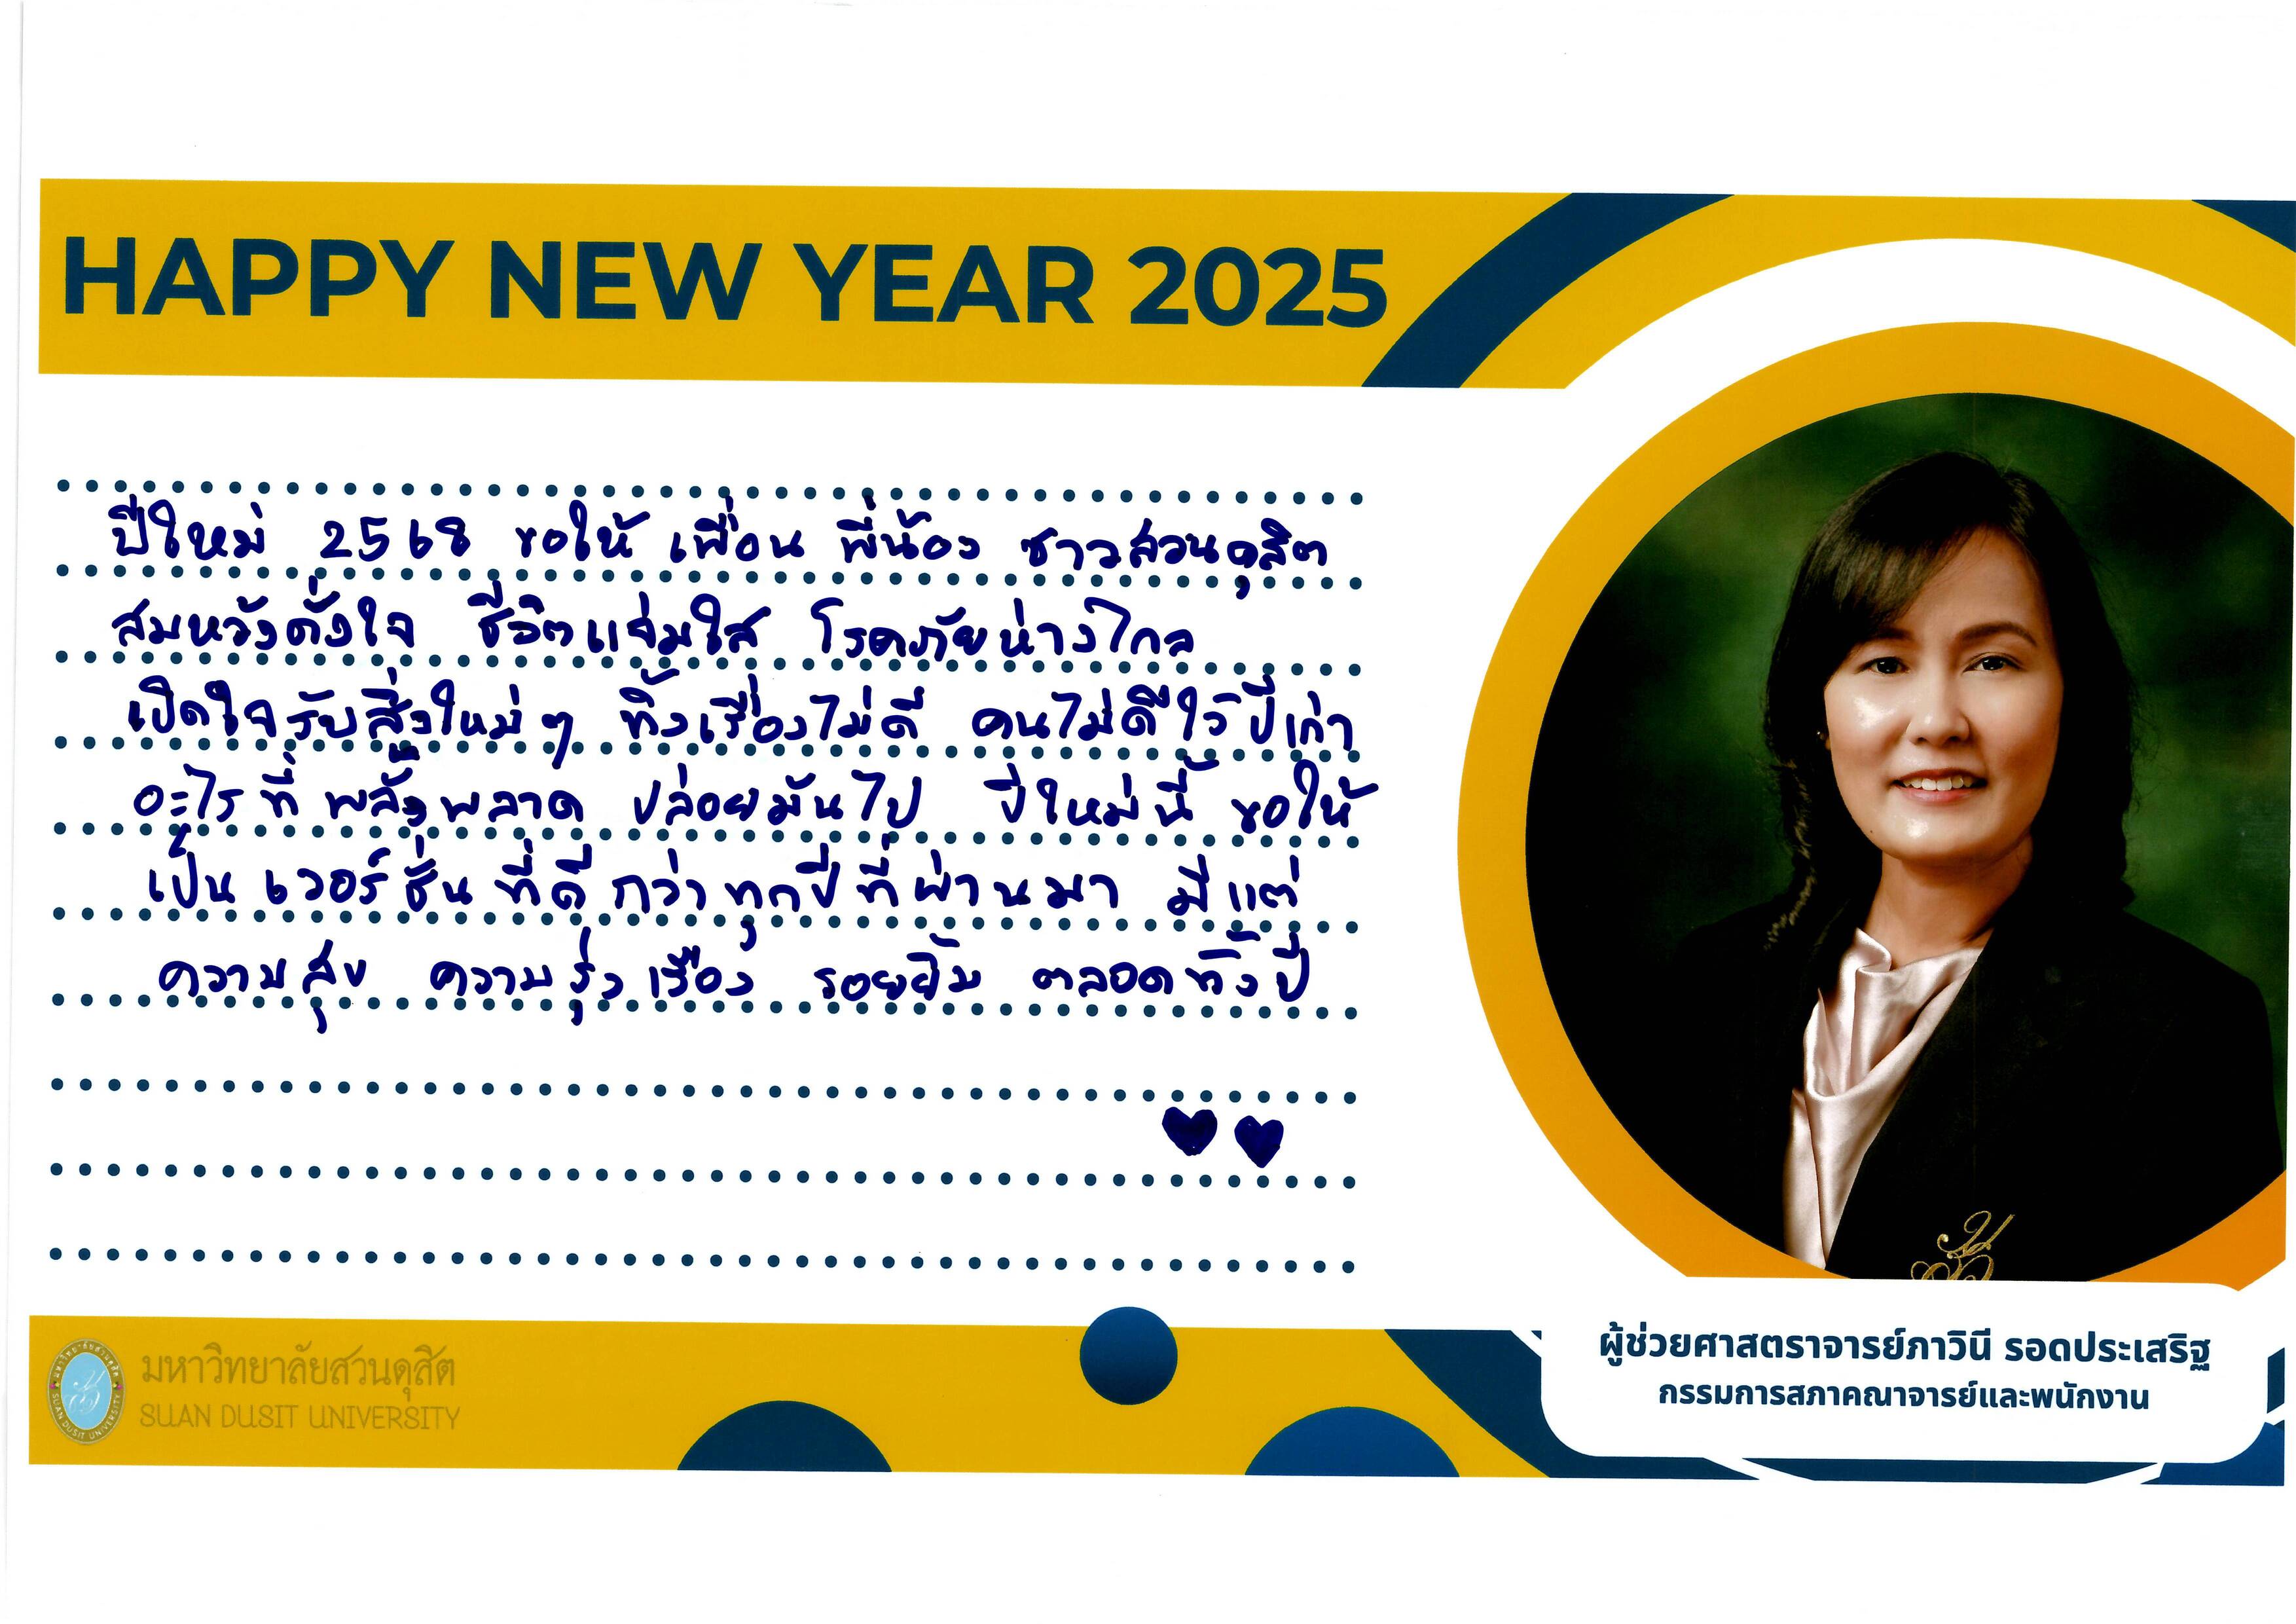 HAPPY NEW YEAR 2025
ปีใหม่ 2568 ขอให้ เพื่อน พี่น้อง ชาวสวนดุสิต
สมหวังดั่งใจ ชีวิตแจ่มใส โรคภัยห่างไกล
เปิดใจรับสิ่งใหม่ๆ ทิ้งเรื่องไม่ดี คนไม่ดีไว้ปีเก่า
อะไรที่พลั้งพลาด ปล่อยมันไป ปีใหม่นี้ ขอให้
เป็นเวอร์ชั่นที่ดีกว่าทุกปีที่ผ่านมา มีแต่
ความสุข ความรุ่งเรือง รอยยิ้ม ตลอดทั้งปี
มหาวิทยาลัยสวนดุสิต
SUAN DUSIT UNIVERSITY
ผู้ช่วยศาสตราจารย์ภาวินี รอดประเสริฐ
กรรมการสภาคณาจารย์และพนักงาน